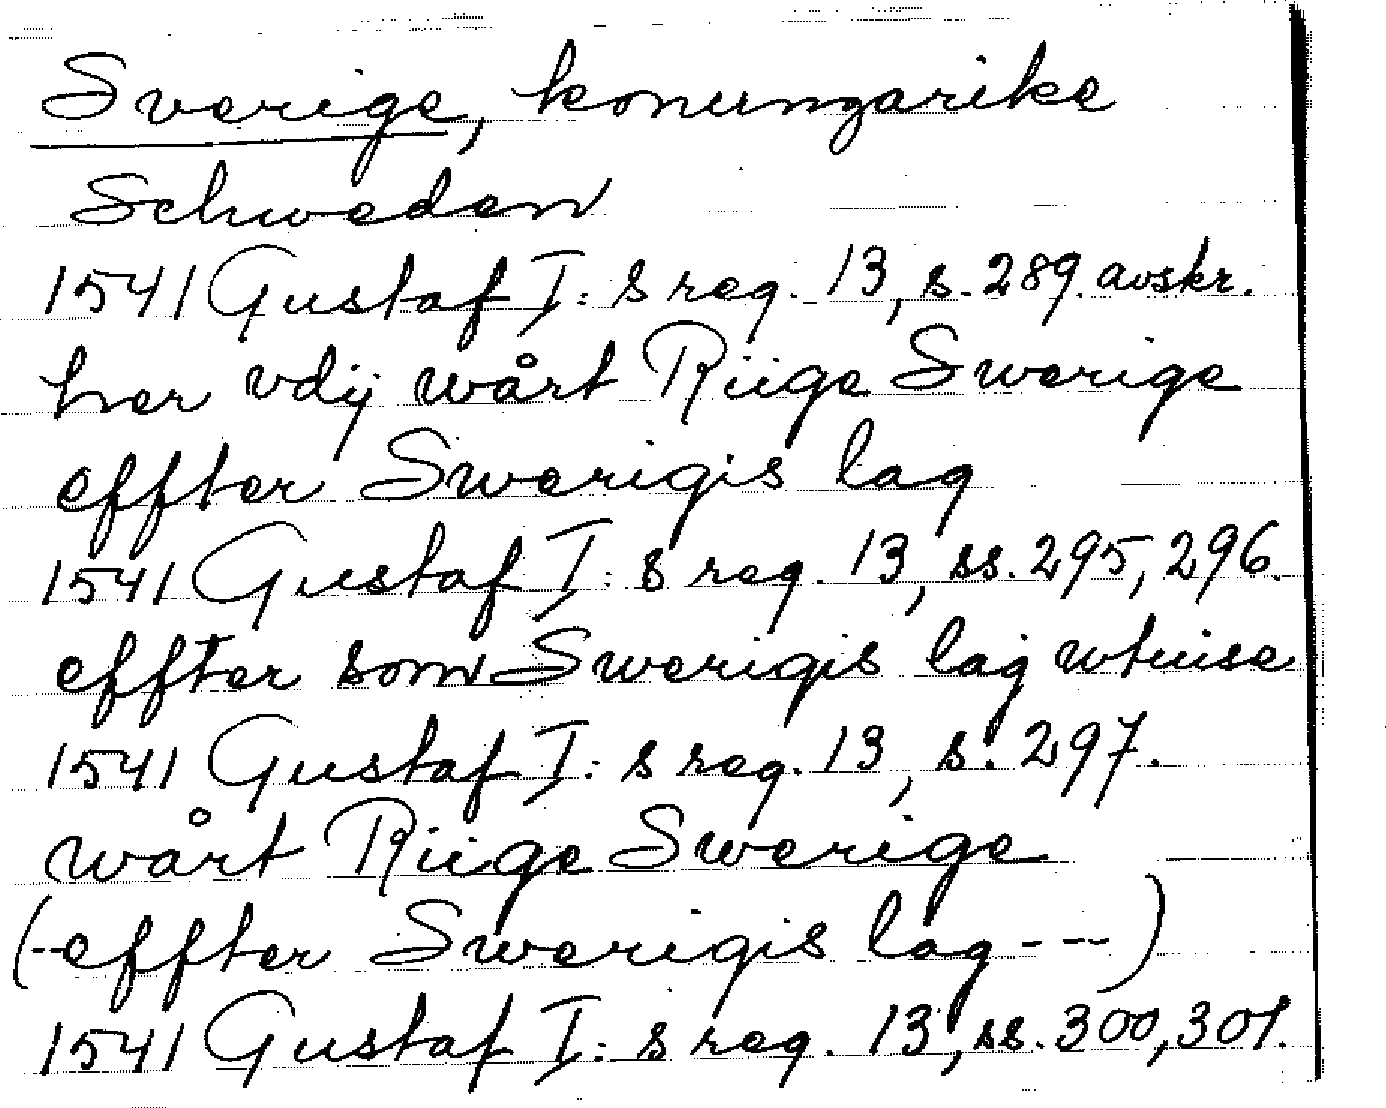 Sverige, konungarike
Schweden
1541 Gustaf I:s reg. 13, s. 289. avskr.
her vdij wårt Riige Swerige
effter Swerigis lag
1541 Gustaf I:s reg. 13, ss. 295, 296.
effter som Swerigis lag wtuise
1541 Gustaf I:s reg. 13, s. 297.
wårt Riige Swerige
(--effter Swerigis lag---)
1541 Gustaf I:s reg. 13, ss. 300, 301.